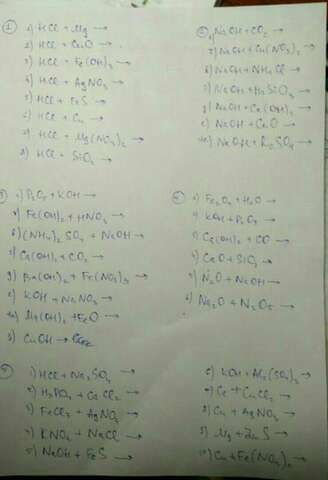 1) HCl + Mg →
2) HCl + CuO →
3) HCl + Fe(OH)3 →
4) HCl + AgNO3 →
5) HCl + FeS →
6) HCl + Cu →
7) HCl + Mg(NO3)2 →
8) HCl + SiO2 →
NaOH + CO2 →
NaOH + Cu(NO3)2 →
NaOH + NH4Cl →
NaOH + H2SiO3 →
NaOH + Ca(OH)2 →
NaOH + CaO →
NaOH + K2SO4 →
P2O5 + KOH →
Fe(OH)2 + HNO3 →
(NH4)2SO4 + NaOH →
Ca(OH)2 + CO2 →
Ba(OH)2 + Fe(NO3)3 →
KOH + NaNO3 →
Mg(OH)2 + FeO →
CuOH →
Fe2O3 + H2O →
KOH + P2O5 →
Ca(OH)2 + CO →
CaO + SiO2 →
N2O + NaOH →
Na2O + N2O5 →
1) HCl + Na2SO4 →
2) H3PO4 + CaCl2 →
3) FeCl3 + AgNO3 →
4) KNO3 + NaCl →
5) NaOH + FeS →
6) KOH + Al2(SO4)3 →
7) + CuCl2 →
8) Cu + AgNO3 →
9) Mg + ZnS →
10) Cu + Fe(NO3)2 →